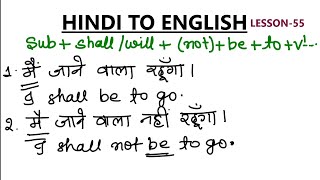 HINDI TO ENGLISH LESSON-55
Sub + shall/will + (not) + be + to + v¹...
1. मैं जाने वाला रहूँगा।
I shall be to go.
2. मैं जाने वाला नहीं रहूँगा।
I shall not be to go.